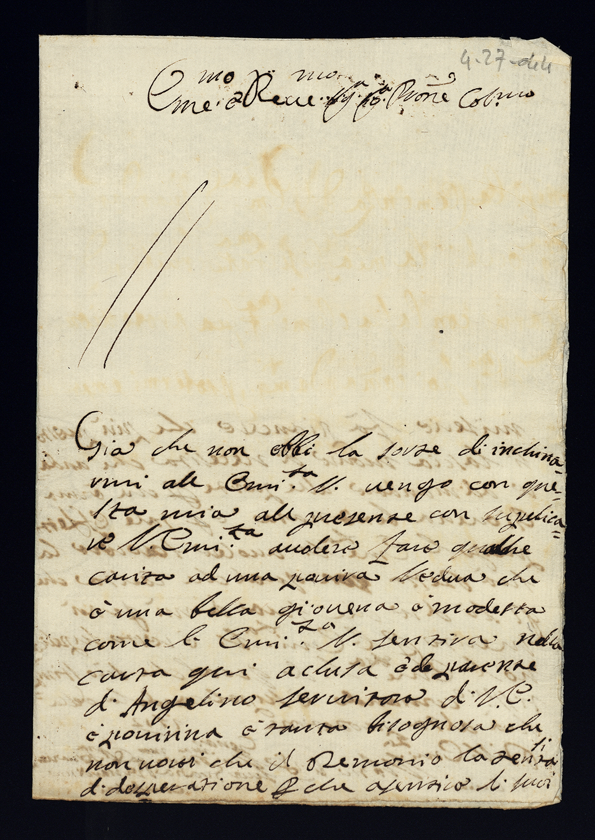 4-27-d44
Eme: è Reue: Sig. Prōne Col:mo
Gia che non ebbi la sorte di inchina=
rmi all Emi:za V. uengo con que=
sta mia all presente con suplica=
re V. Emi:za auolere fare qualche
carita ad una pouira Vedua che
è una bella giouena è modesta
come l: Emi:za V. sentira nella
carta qui aclusa è de parente
d: Angelino Seruitore d: V. E.
è pouirina è tanta bisognosa che
non uorei che il Demonio la tentasi
d: desperatione che li suoi